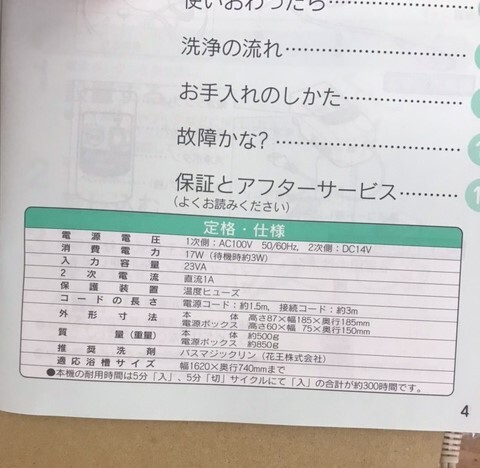 使いおわったら
洗浄の流れ
お手入れのしかた
故障かな?
保証とアフターサービス
(よくお読みください)
定格・仕様
電源電圧 1次側:AC100V 50/60Hz, 2次側:DC14V
消費電力 17W(待機時約3W)
入力容量 23VA
2次電流 直流1A
保護装置 温度ヒューズ
コードの長さ 電源コード:約1.5m, 接続コード:約3m
外形寸法 本体 高さ87×幅185×奥行185mm
電源ボックス 高さ60×幅75×奥行150mm
質量(重量) 本体 約500g
電源ボックス 約850g
推奨洗剤 バスマジックリン(花王株式会社)
適応浴槽サイズ 幅1620×奥行740mmまで
●本機の耐用時間は5分「入」、5分「切」サイクルにて「入」の合計が約300時間です。
4